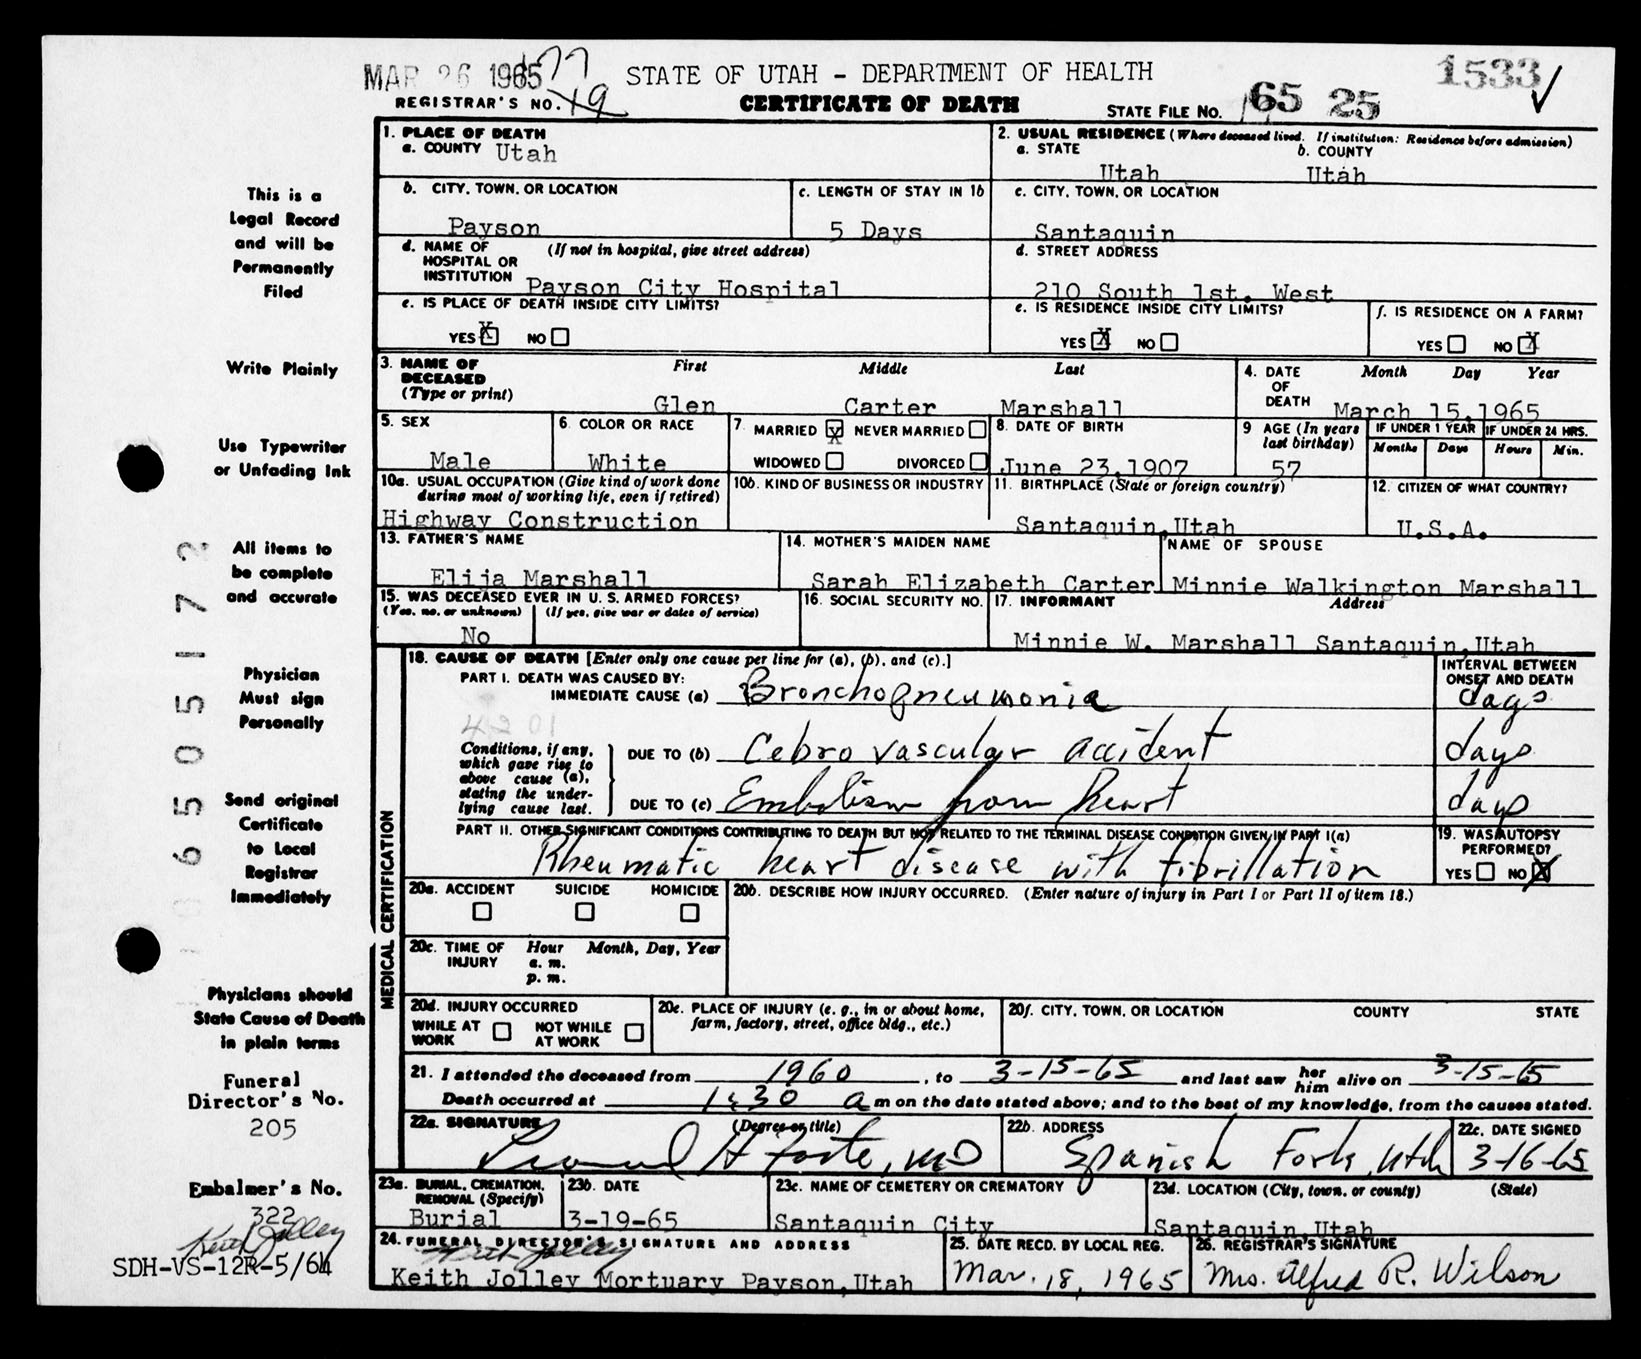 MAR 26 1965 177
STATE OF UTAH - DEPARTMENT OF HEALTH
1533
REGISTRAR'S NO. 19
CERTIFICATE OF DEATH
STATE FILE NO. 65 25
1. PLACE OF DEATH
a. COUNTY Utah
2. USUAL RESIDENCE (Where deceased lived. If institution: Residence before admission)
a. STATE b. COUNTY
Utah Utah
b. CITY, TOWN, OR LOCATION
Payson
c. LENGTH OF STAY IN 1b
5 Days
c. CITY, TOWN, OR LOCATION
Santaquin
d. NAME OF (If not in hospital, give street address)
HOSPITAL OR
INSTITUTION Payson City Hospital
d. STREET ADDRESS
210 South 1st. West
e. IS PLACE OF DEATH INSIDE CITY LIMITS?
YES X NO
e. IS RESIDENCE INSIDE CITY LIMITS?
YES X NO
f. IS RESIDENCE ON A FARM?
YES NO X
3. NAME OF First Middle Last
DECEASED
(Type or print)
Glen Carter Marshall
4. DATE Month Day Year
OF
DEATH March 15,1965
5. SEX
Male
6. COLOR OR RACE
White
7. MARRIED X NEVER MARRIED
WIDOWED DIVORCED
8. DATE OF BIRTH
June 23,1907
9 AGE (In years
last birthday)
57
IF UNDER 1 YEAR IF UNDER 24 HRS.
Months Days Hours Min.
10a. USUAL OCCUPATION (Give kind of work done
during most of working life, even if retired)
Highway Construction
10b. KIND OF BUSINESS OR INDUSTRY
11. BIRTHPLACE (State or foreign country)
Santaquin,Utah
12. CITIZEN OF WHAT COUNTRY?
U.S.A.
13. FATHER'S NAME
Elija Marshall
14. MOTHER'S MAIDEN NAME
Sarah Elizabeth Carter
NAME OF SPOUSE
Minnie Walkington Marshall
15. WAS DECEASED EVER IN U. S. ARMED FORCES?
(Yes, no, or unknown) (If yes, give war or dates of service)
No
16. SOCIAL SECURITY NO.
17. INFORMANT Address
Minnie W. Marshall Santaquin,Utah
MEDICAL CERTIFICATION
18. CAUSE OF DEATH [Enter only one cause per line for (a), (b), and (c).]
INTERVAL BETWEEN
ONSET AND DEATH
PART I. DEATH WAS CAUSED BY:
IMMEDIATE CAUSE (a) Bronchopneumonia days
Conditions, if any,
which gave rise to
above cause (a),
stating the under-
lying cause last.
DUE TO (b) Cebro vascular accident days
DUE TO (c) Embolism from heart days
PART II. OTHER SIGNIFICANT CONDITIONS CONTRIBUTING TO DEATH BUT NOT RELATED TO THE TERMINAL DISEASE CONDITION GIVEN IN PART I(a)
Rheumatic heart disease with fibrillation
19. WAS AUTOPSY
PERFORMED?
YES NO X
20a. ACCIDENT SUICIDE HOMICIDE
20b. DESCRIBE HOW INJURY OCCURRED. (Enter nature of injury in Part I or Part II of item 18.)
20c. TIME OF Hour Month, Day, Year
INJURY a. m.
p. m.
20d. INJURY OCCURRED
WHILE AT WORK NOT WHILE AT WORK
20e. PLACE OF INJURY (e. g., in or about home,
farm, factory, street, office bldg., etc.)
20f. CITY, TOWN, OR LOCATION COUNTY STATE
21. I attended the deceased from 1960, to 3-15-65 and last saw her him alive on 3-15-65
Death occurred at 1:30 a m on the date stated above; and to the best of my knowledge, from the causes stated.
22a. SIGNATURE (Degree or title)
H Foote, MD
22b. ADDRESS
Spanish Fork, Utah
22c. DATE SIGNED
3-16-65
23a. BURIAL, CREMATION,
REMOVAL (Specify)
Burial
23b. DATE
3-19-65
23c. NAME OF CEMETERY OR CREMATORY
Santaquin City
23d. LOCATION (City, town, or county) (State)
Santaquin,Utah
24. FUNERAL DIRECTOR'S SIGNATURE AND ADDRESS
Keith Jolley
Keith Jolley Mortuary Payson,Utah
25. DATE RECD. BY LOCAL REG.
Mar. 18, 1965
26. REGISTRAR'S SIGNATURE
Mrs. Alfred R. Wilson
This is a
Legal Record
and will be
Permanently
Filed
Write Plainly
Use Typewriter
or Unfading Ink
All items to
be complete
and accurate
Physician
Must sign
Personally
Send original
Certificate
to Local
Registrar
Immediately
Physicians should
State Cause of Death
in plain terms
Funeral
Director's No.
205
Embalmer's No.
322
Keith Jolley
SDH-VS-12R-5/64